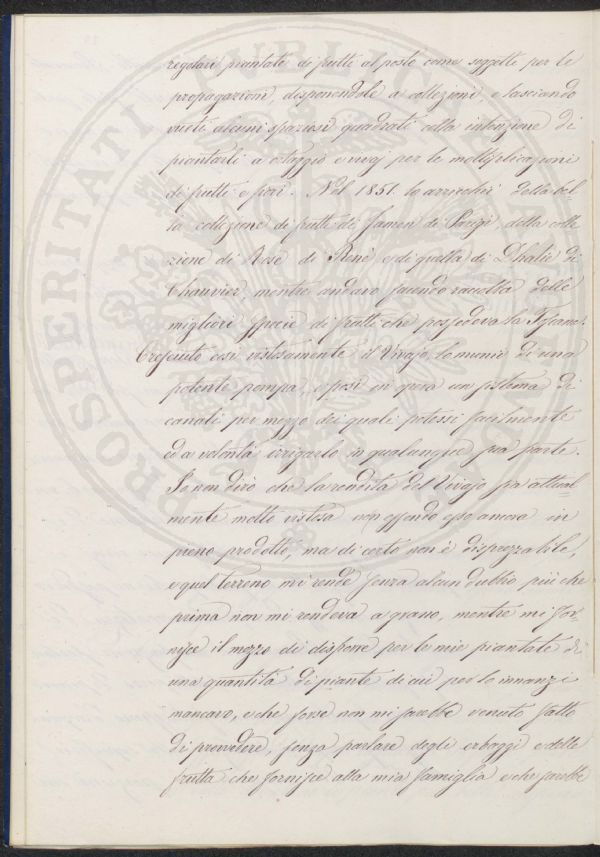 regolari piantate di frutti al posto come soggetti per le
propagazioni, disponendole a collezioni, e lasciando
vuoti alcuni spaziosi quadrati colla intenzione di
piantarli a ortaggio e vivaj per le moltiplicazioni
di frutti e fiori. Nel 1851. lo arricchii della bel-
la collezione di frutti di Jamen di Parigi, della colle
zione di Rose di René e di quella di Dhalie di
Chauvier, mentre andavo facendo raccolta delle
migliori specie di frutti che possedeva la Toscana.
Cresciuto così vistosamente il Vivajo, lo munii di una
potente pompa, e posi in opera un sistema di
canali per mezzo dei quali potessi facilmente
ed a volontà irrigarlo in qualunque sua parte.
Io non dirò che la rendita del Vivajo sia attual-
mente molto vistosa non essendo esso ancora in
pieno prodotto, ma di certo non è disprezzabile,
e quel terreno mi rende senza alcun dubbio più che
prima non mi rendeva a grano, mentre mi for-
nisce il mezzo di disporre per le mie piantate di
una quantità di piante di cui per lo innanzi
mancavo, e che forse non mi sarebbe venuto fatto
di provvedere, senza parlare degli erbaggi e delle
frutta che fornisce alla mia famiglia e che sarebbe
PUBLICAE
PROSPERITATI